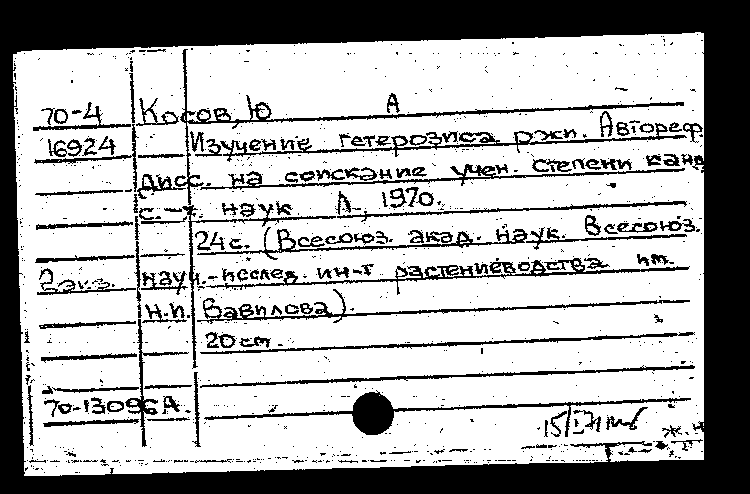 70-4 Косов, Ю А
16924 Изучение гетерозиса ржи. Автореф
дисс. на соискание учен. степени канд
с.-х. наук Л, 1970.
24 с. (Всесоюз. акад. наук. Всесоюз.
2 экз. науч.-исслед. ин-т растениеводства им.
Н.И. Вавилова).
20 см.
70-13096А.
15/I 71
Ж.Н